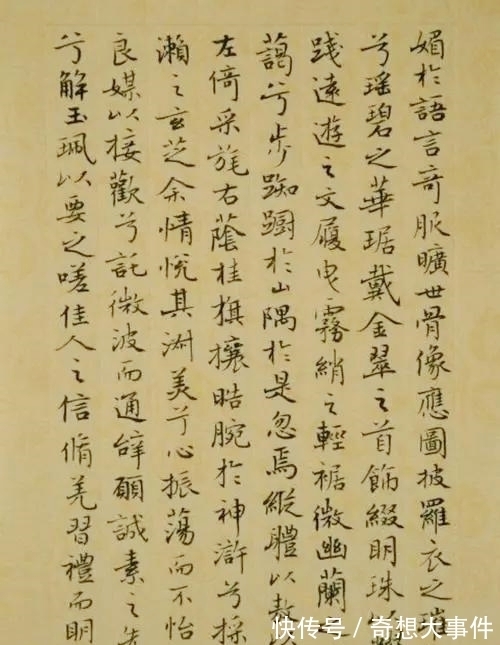 媚於語言奇服曠世骨像應圖披羅衣之璀
兮瑤碧之華琚戴金翠之首飾綴明珠以
踐遠遊之文履曳霧綃之輕裾微幽蘭
藹兮步踟躕於山隅於是忽焉縱體以
左倚采旄右蔭桂旗攘晧腕於神滸兮採
瀨之玄芝余情悅其淑美兮心振蕩而不怡
良媒以接歡兮託微波而通辭願誠素之先
兮解玉珮以要之嗟佳人之信脩羌習禮而明
快传号/奇想大事件